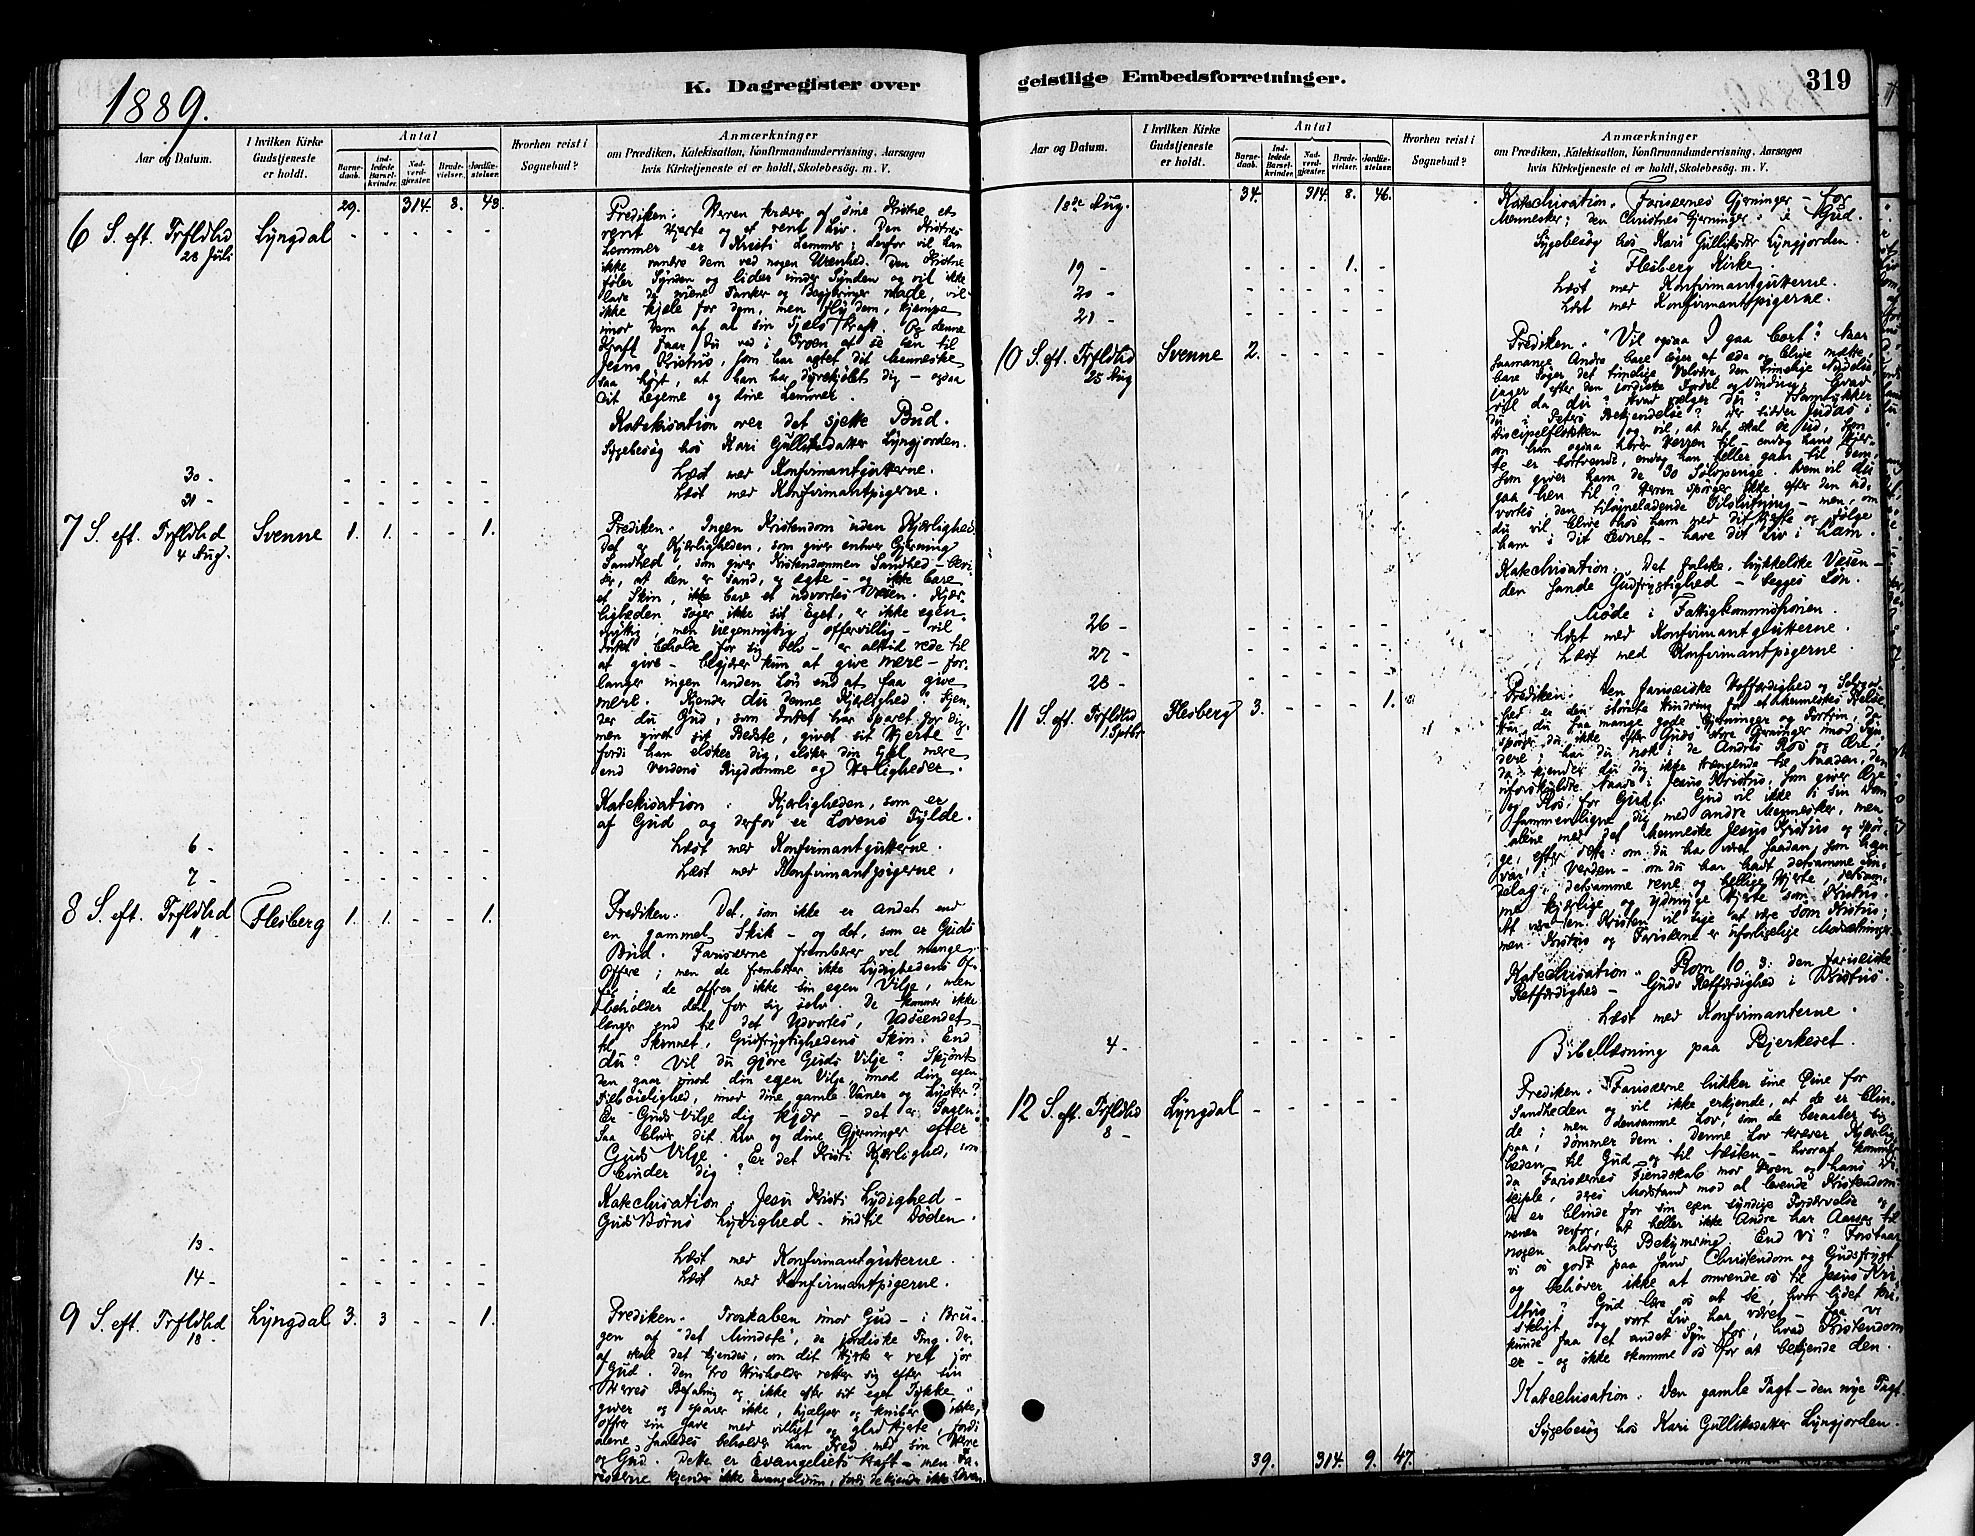 1889.
K. Dagregister over
Aar og Datum.
I hvilken Kirke Gudstjeneste er holdt.
Antal
Barnedaab.
Indledede Barselkvinder.
Nadverdgjæster.
Brudevielser.
Jordfæstelser.
Hvorhen reist i Sognebud?
Anmærkninger
om Prædiken, Katekisation, Konfirmandundervisning, Aarsagen
hvis Kirketjeneste ei er holdt, Skolebesøg. m. V.
29. 314. 8. 43.
6 S. eft. Trfldhd Lyngdal - - - - -
28 Juli
Prediken: Herren kræver af sine Kristne et
rent Hjerte og et rent Liv. Den Kristnes
Lemmer er Kristi Lemmer; derfor vil han
ikke vandre dem ved nogen Urenhed. Den Kristne
føler Synden og lider under Synden og vil ikke
lade de urene Tanker og Begjæringer raade, vil
ikke hjele for dem, men fly dem, kjæmpe
imod dem af al sin Sjæls Kraft. Og denne
Kraft faar du ved i Troen at se hen til
Jesus Kristus, som har agtet dit Menneske
saa højt, at han har dyrekjøbt dig - ogsaa
dit Legeme og dine Lemmer.
Katekisation over det sjette Bud.
Sygebesøg hos Kari Gulliksdatter Lyngjorden.
30 - - - - - - Læst med Konfirmantgutterne.
31 - - - - - - Læst med Konfirmantpigerne.
7 S. eft. Trfldhd Svenne 1. 1. - - 1.
4 Aug.
Prediken. Ingen Kristendom uden Kjærlighed.
Det er Kjærligheden, som giver enhver Gjerning
Sandhed, som giver Kristendommen Sandhed - bevi-
ser, at den er sand, og ægte - og ikke bare
et Skin, ikke bare et udvortes Væsen. Kjær-
ligheden søger ikke sit Eget, er ikke egen-
nyttig, men uegennyttig offervillig - vil
Intet beholde for sig selv - er altid rede til
at give - begjærer kun at give mere - for-
langer ingen anden Løn end at faa give
mere. Kjender du denne Kjærlighed? Kjen-
der du Gud, som Intet har sparet for dig,
men givet sit Bedste, givet sit Hjerte -
fordi han elsker dig, elsker din Sjæl mere
end Verdens Rigdomme og Herligheder.
Katekisation. Kjærligheden, som er
af Gud og derfor er Lovens Fylde.
6 - - - - - - Læst med Konfirmantgutterne.
7 - - - - - - Læst med Konfirmantpigerne.
8 S. eft. Trfldhd Flesberg 1. 1. - - 1.
"
Prediken. Det, som ikke er andet end
en gammel Skik - og det, som er Guds
Bud. Farisæerne frembærer vel mange
Offere; men de frembærer ikke Lydighedens Of-
fer; de offrer ikke sin egen Vilje, men
beholder den for sig selv. De kommer ikke
længer end til det Udvortes, Udseendet -
til Skinnet, Gudfrygtighedens Skin. End
du? Vil du gjøre Guds Vilje? Skjønt
den gaar imod din egen Vilje, imod din egen
Tilbøielighed, imod dine gamle Vaner og Lyster?
Er Guds Vilje dig kjær - det er Sagen:
Saa bliver dit Liv og dine Gjerninger efter
Guds Vilje. Er det Kristi Kjærlighed, som
binder dig?
Katechisation. Jesu Kristi Lydighed -
Guds Børns Lydighed - indtil Døden.
13 - - - - - - Læst med Konfirmantgutterne.
14 - - - - - - Læst med Konfirmantpigerne.
9 S. eft. Trfldhd Lyngdal 3. 3 - - 1.
18 -
Prediken. Troskaben imod Gud - i Bru-
gen af "det Mindste", de jordiske Ting. Der-
af skal det kjendes, om dit Hjerte er ret for
Gud. Den tro Husholder retter sig efter sin
Herres Befaling og ikke efter sit eget Tykke
giver og sparer ikke, hjælper og kniber ikke,
offrer sin Gave med villigt og glad Hjerte, fordi
alene saaledes beholder han Fred med sin Herre
og Gud. Dette er Evangeliets Kraft - men Fa-
risæerne kjender ikke Evangelium, fordi de kjender ikke Loven
geistlige Embedsforretninger.
319
Aar og Datum.
I hvilken Kirke Gudstjeneste er holdt.
Antal
Barnedaab.
Indledede Barselkvinder.
Nadverdgjæster.
Brudevielser.
Jordfæstelser.
Hvorhen reist i Sognebud?
Anmærkninger
om Prædiken, Katekisation, Konfirmandundervisning, Aarsagen
hvis Kirketjeneste ei er holdt, Skolebesøg. m. V.
18de Aug. 34. 314. 8. 46.
Katechisation. Farisæernes Gjerninger - for
Mennesker; den Christnes Gjerninger - i Gud.
Sygebesøg hos Kari Gulliksdtr Lyngjorden.
19 - - - - 1. - i Flesberg Kirke
20 - - - - - - Læst med Konfirmantgutterne.
21 - - - - - - Læst med Konfirmantpigerne.
10 S. eft. Trfldhd Svenne 2. - - - -
25 Aug
Prediken. "Vil ogsaa I gaa bort?" Naar
saamange Andre bare søger at æde og blive mætte,
bare søger det timelige Velvære, den timelige Nydelse,
jager efter den jordiske Fordel og Vinding. Hvad
vil da du? Hvad vælger du? Samtykker
du i Peters Bekjendelse? Der sidder Judas i
Discipelflokken og vil, at det skal se ud, som
om han ogsaa hører Herren til - endog hans Hjer-
te er bortvendt, endog han heller gaar til dem,
som giver ham de 30 Sølvpenge. Hvem vil du
gaa hen til? Herren spørger ikke efter den ud-
vortes, den tilsyneladende Tilslutning - men, om
du vil blive hos ham med dit Hjerte og følge
ham i dit Levnet - have dit Liv i ham.
Katechisation. Det falske, hykkelske Væsen -
den sande Gudfrygtighed - begges Løn.
26 - - - - - - Møde i Fattigkommissionen.
27 - - - - - - Læst med Konfirmantgutterne.
28 - - - - - - Læst med Konfirmantpigerne.
11 S. eft. Trfldhd Flesberg 3. - - - 1.
1 Septbr
Prediken. Den farisæiske Hoffærdighed og Selvgod-
hed er den største Hindring for et Menneskes Frelse.
Har du saa mange gode Gjerninger og Fortrin, da
spørger du ikke efter Guds store Gjerninger mod Syn-
dere; har du nok i de Andres Ros og Ære,
da kjender du dig ikke trængende til Naaden, den
uforskyldte Naade i Jesus Kristus, som giver Ære
og Ros for Gud. Gud vil ikke i sin Dom
sammenligne dig med andre Mennesker, men
alene med det Menneske Jesus Kristus og spør-
ge, efter dette: om du har været saadan, som han
var, i Verden - om du har havt detsamme Sin-
delag, detsamme rene og hellige Hjerte, detsam-
me kjærlige og ydmyge Hjerte som Kristus.
At være en Kristen vil sige at være som Kristus;
men Kristus og Farisæerne er uforligelige Modsætninger.
Katechisation. Rom 10 3. den farisæiske
Retfærdighed - Guds Retfærdighed i Kristus.
Læst med Konfirmanterne.
4 - - - - - - Bibellæsning paa Bjerkeset.
12 S. eft. Trfldhd Lyngdal - - - - -
8 -
Prediken. Farisæerne lukker sine Øine for
Sandheden og vil ikke erkjende, at de er blin-
de; men densamme Lov, som de beraaber sig
paa, dømmer dem. Denne Lov kræver Kjærlig-
heden til Gud og til Næsten - hvoraf kommer
da Farisæernes Fiendskab mod Herren og hans Di-
sciple, deres Modstand mod al levende Kristendom.
De er blinde for sin egen syndige Fordærvelse og
mener derfor, at heller ikke Andre har Aarsag til
nogen alvorlig Bekymring. End vi? Forstaar
vi os godt paa sand Christendom og Gudsfrygt
og behøver ikke at omvende os til Jesus Kri-
stus? Gud lære os at se, hvor lidet kri-
steligt Sag vort Liv har været - saa vi
kunde faa et andet Syn for, hvad Kristendom
er - og ikke skamme os for at bekjende den.
Katechisation. Den gamle Pagt - den nye Pagt.
Sygebesøg hos Kari Gulliksdatter Lyngjorden.
39. 314. 9. 47.